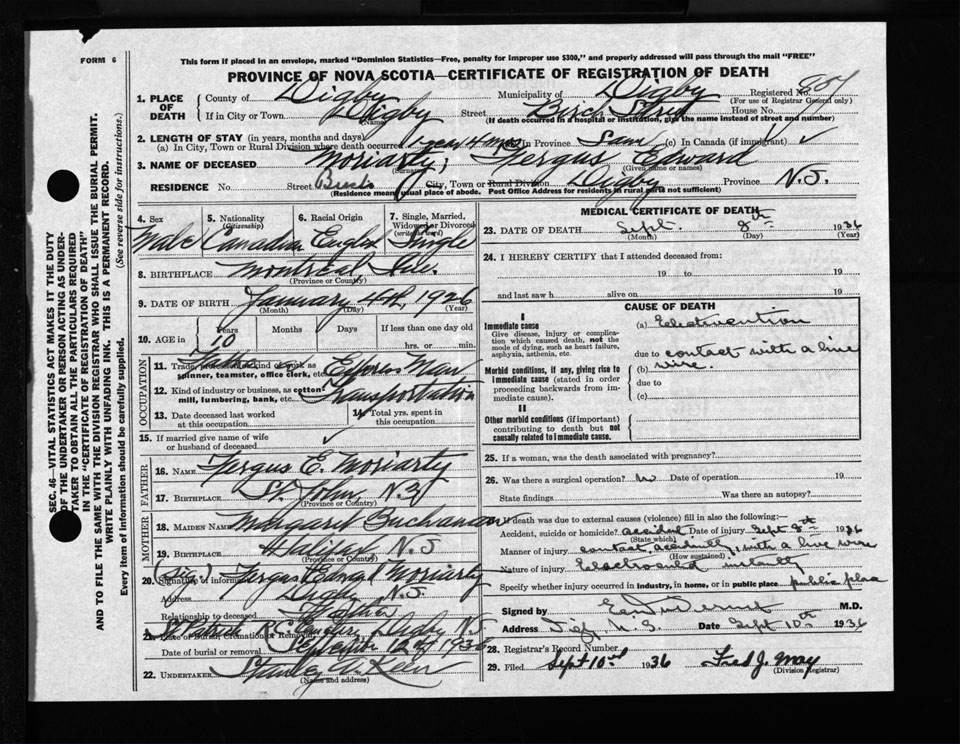 FORM 6
This form if placed in an envelope, marked "Dominion Statistics—Free, penalty for improper use $300," and properly addressed will pass through the mail "FREE"
PROVINCE OF NOVA SCOTIA—CERTIFICATE OF REGISTRATION OF DEATH
1. PLACE OF DEATH
County of Digby Municipality of Digby Registered No.
(For use of Registrar General only)
If in City or Town Digby Street Birch Street House No.
(Name) (If death occurred in a hospital or institution, give the name instead of street and number)
2. LENGTH OF STAY (in years, months and days)
(a) In City, Town or Rural Division where death occurred 1 year 4 mos In Province Same (c) In Canada (if immigrant) ✓
3. NAME OF DECEASED Moriarty, Fergus Edward
(Surname) (Given name or names)
RESIDENCE No. Street Birch City, Town or Rural Division Digby Province N.S.
(Residence means usual place of abode. Post Office Address for residents in rural parts not sufficient)
4. Sex Male
5. Nationality (Citizenship) Canadian
6. Racial Origin English
7. Single, Married, Widowed or Divorced (write the word) Single
8. BIRTHPLACE Montreal, Que.
(Province or Country)
9. DATE OF BIRTH January 4th, 1926
(Month) (Day) (Year)
10. AGE in Years 10 Months Days If less than one day old hrs. or min.
OCCUPATION
11. Trade, profession or kind of work as spinner, teamster, office clerk, etc. Father Express Man
12. Kind of industry or business, as cotton mill, lumbering, bank, etc. Transportation
13. Date deceased last worked at this occupation
14. Total yrs. spent in this occupation
15. If married give name of wife or husband of deceased ✓
FATHER
16. NAME Fergus E. Moriarty
17. BIRTHPLACE St. John, N.B.
(Province or Country)
MOTHER
18. MAIDEN NAME Margaret Buchanan
19. BIRTHPLACE Halifax, N.S.
(Province or Country)
20. Signature of informant (Sig) Fergus Edward Moriarty
Address Digby N.S.
Relationship to deceased Father
21. Place of Burial, Cremation or Removal St Patrick's Digby N.S.
Date of burial or removal September 1936
22. UNDERTAKER Stanley
(Name and address)
MEDICAL CERTIFICATE OF DEATH
23. DATE OF DEATH Sept. 8th 1936
(Month) (Day) (Year)
24. I HEREBY CERTIFY that I attended deceased from:
19 to 19
and last saw h alive on 19
CAUSE OF DEATH
I
Immediate cause
Give disease, injury or complication which caused death, not the mode of dying, such as heart failure, asphyxia, asthenia, etc.
(a) Electrocution
due to contact with a live wire.
Morbid conditions, if any, giving rise to immediate cause (stated in order proceeding backwards from immediate cause).
(b)
due to
(c)
II
Other morbid conditions (if important) contributing to death but not causally related to immediate cause.
25. If a woman, was the death associated with pregnancy?
26. Was there a surgical operation? No Date of operation 19
State findings Was there an autopsy?
If death was due to external causes (violence) fill in also the following:—
Accident, suicide or homicide? accident Date of injury Sept 8th 1936
(State which)
Manner of injury contact, accidently, with a live wire
(How sustained)
Nature of injury Electrocuted instantly
Specify whether injury occurred in Industry, in home, or in public place public place
Signed by M.D.
Address Digby, N.S. Date Sept 10th 1936
28. Registrar's Record Number
29. Filed Sept 10th 1936 Fred J. May
(Division Registrar)
SEC. 46—VITAL STATISTICS ACT MAKES IT THE DUTY
OF THE UNDERTAKER OR PERSON ACTING AS UNDER-
TAKER TO OBTAIN ALL THE PARTICULARS REQUIRED
IN THE "CERTIFICATE OF REGISTRATION OF DEATH"
AND TO FILE THE SAME WITH THE DIVISION REGISTRAR WHO SHALL ISSUE THE BURIAL PERMIT.
WRITE PLAINLY WITH UNFADING INK. THIS IS A PERMANENT RECORD.
Every item of information should be carefully supplied. (See reverse side for instructions.)